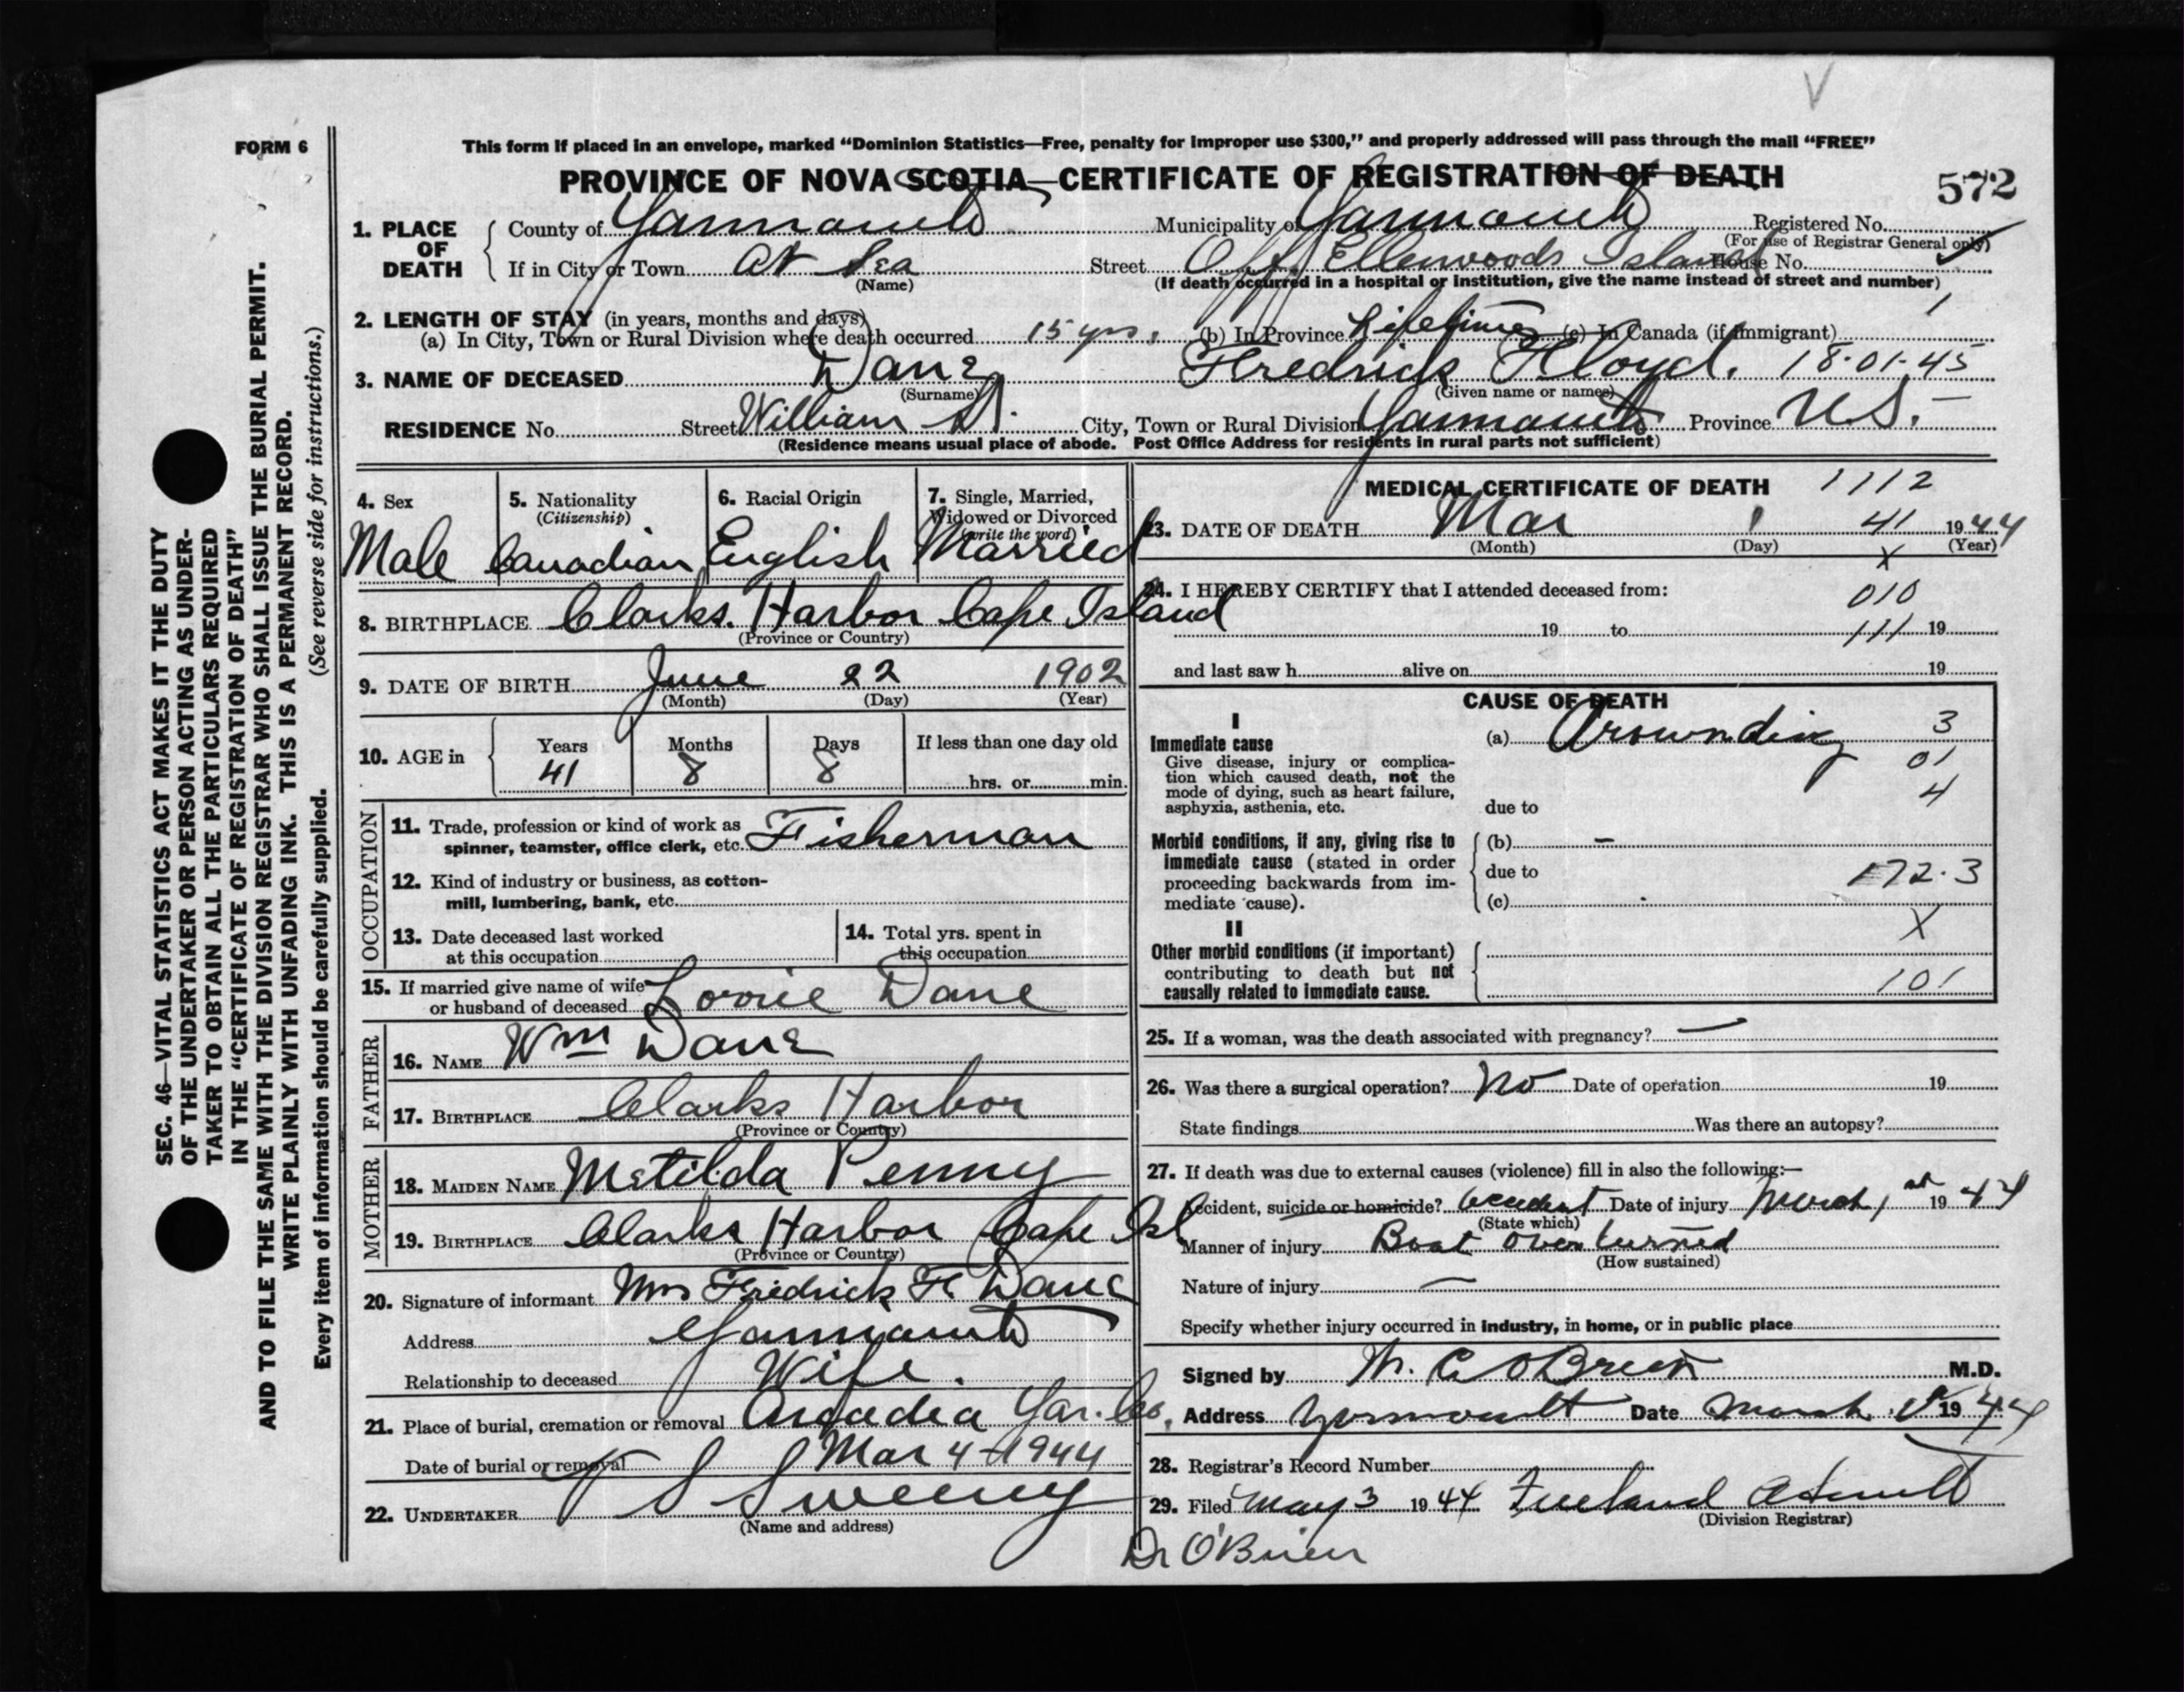 V
FORM 6
This form if placed in an envelope, marked “Dominion Statistics—Free, penalty for improper use $300,” and properly addressed will pass through the mail “FREE”
PROVINCE OF NOVA SCOTIA—CERTIFICATE OF REGISTRATION OF DEATH
572
1. PLACE OF DEATH
County of Yarmouth Municipality of Yarmouth Registered No.
(For use of Registrar General only)
If in City or Town At Sea Street Off Ellenwoods Island House No.
(Name)
(If death occurred in a hospital or institution, give the name instead of street and number)
2. LENGTH OF STAY (in years, months and days)
(a) In City, Town or Rural Division where death occurred 15 yrs. (b) In Province Lifetime (c) In Canada (if immigrant) 1
3. NAME OF DECEASED Dane Fredrick Floyd. 18·01·45
(Surname) (Given name or names)
RESIDENCE No. Street William St. City, Town or Rural Division Yarmouth Province N.S.
(Residence means usual place of abode. Post Office Address for residents in rural parts not sufficient)
4. Sex Male
5. Nationality (Citizenship) Canadian
6. Racial Origin English
7. Single, Married, Widowed or Divorced (write the word) Married
8. BIRTHPLACE Clarks. Harbor Cape Island
(Province or Country)
9. DATE OF BIRTH June 22 1902
(Month) (Day) (Year)
10. AGE in Years 41 Months 8 Days 8 If less than one day old
hrs. or min.
OCCUPATION
11. Trade, profession or kind of work as
spinner, teamster, office clerk, etc. Fisherman
12. Kind of industry or business, as cotton-
mill, lumbering, bank, etc.
13. Date deceased last worked
at this occupation
14. Total yrs. spent in
this occupation
15. If married give name of wife
or husband of deceased Lorrie Dane
FATHER
16. NAME Wm Dane
17. BIRTHPLACE Clarks Harbor
(Province or Country)
MOTHER
18. MAIDEN NAME Matilda Penny
19. BIRTHPLACE Clarks Harbor Cape Isl
(Province or Country)
20. Signature of informant Mrs Fredrick F. Dane
Address Yarmouth
Relationship to deceased Wife.
21. Place of burial, cremation or removal Arcadia Yar. Co.
Date of burial or removal Mar 4 - 1944
22. UNDERTAKER V S Sweeny
(Name and address)
MEDICAL CERTIFICATE OF DEATH 1112
23. DATE OF DEATH Mar 1 41 1944
(Month) (Day) (Year)
X
24. I HEREBY CERTIFY that I attended deceased from: 010
19 to 111 19
and last saw h alive on 19
CAUSE OF DEATH
I
Immediate cause (a) Drownding 3
Give disease, injury or complica-
tion which caused death, not the 01
mode of dying, such as heart failure, 4
asphyxia, asthenia, etc. due to
Morbid conditions, if any, giving rise to (b) –
immediate cause (stated in order
proceeding backwards from im- due to 172·3
mediate cause). (c)
II X
Other morbid conditions (if important)
contributing to death but not
causally related to immediate cause. 101
25. If a woman, was the death associated with pregnancy? —
26. Was there a surgical operation? No Date of operation 19
State findings Was there an autopsy?
27. If death was due to external causes (violence) fill in also the following:—
Accident, suicide or homicide? Accident Date of injury March 1st 1944
(State which)
Manner of injury Boat overturned
(How sustained)
Nature of injury —
Specify whether injury occurred in industry, in home, or in public place
Signed by O'Brien M.D.
Address Yarmouth Date March 1944
28. Registrar's Record Number
29. Filed May 3 1944 Freeland
(Division Registrar)
Dr O'Brien
SEC. 46—VITAL STATISTICS ACT MAKES IT THE DUTY
OF THE UNDERTAKER OR PERSON ACTING AS UNDER-
TAKER TO OBTAIN ALL THE PARTICULARS REQUIRED
IN THE “CERTIFICATE OF REGISTRATION OF DEATH”
AND TO FILE THE SAME WITH THE DIVISION REGISTRAR WHO SHALL ISSUE THE BURIAL PERMIT.
WRITE PLAINLY WITH UNFADING INK. THIS IS A PERMANENT RECORD.
Every item of information should be carefully supplied. (See reverse side for instructions.)